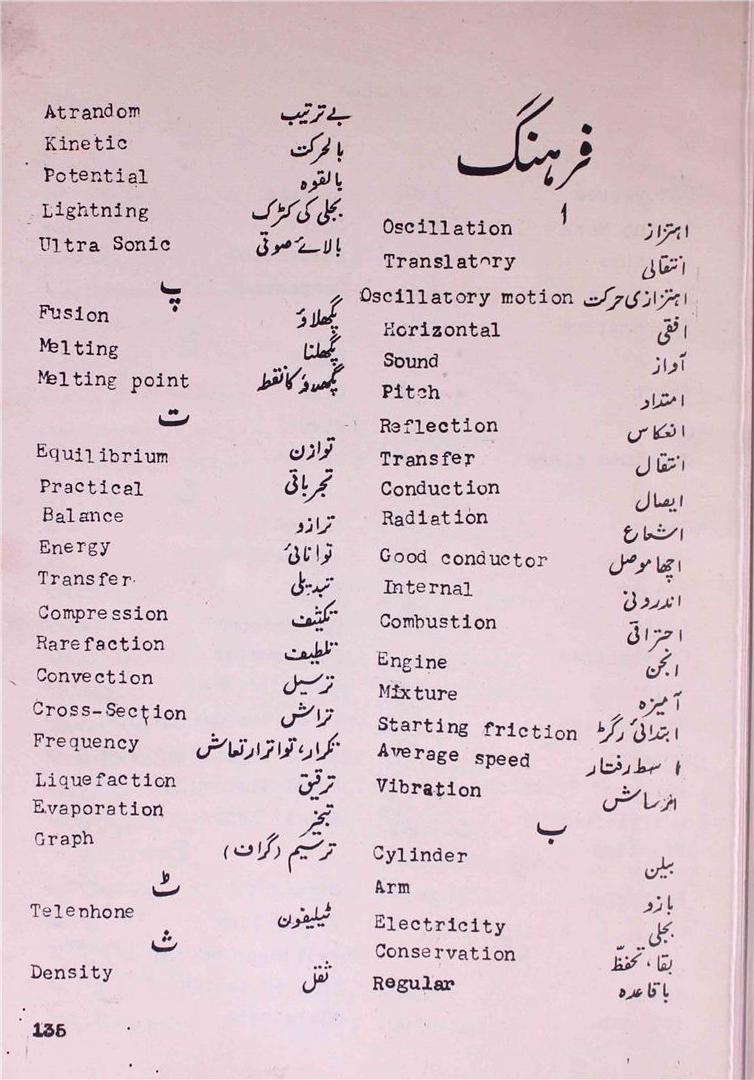 فرہنگ
ا
Oscillation اہتزاز
Translatory انتقالی
Oscillatory motion اہتزازی حرکت
Horizontal افقی
Sound آواز
Pitch امتداد
Reflection انعکاس
Transfer انتقال
Conduction ایصال
Radiation اشعاع
Good conductor اچھا موصل
Internal اندرونی
Combustion احتراقی
Engine انجن
Mixture آمیزہ
Starting friction ابتدائی رگڑ
Average speed اوسط رفتار
Vibration
ب
Cylinder بیلن
Arm بازو
Electricity بجلی
Conservation بقا، تحفظّ
Regular باقاعدہ
Atrandom بے ترتیب
Kinetic بالحرکت
Potential بالقوہ
Lightning بجلی کی کڑک
Ultra Sonic بالائے صوتی
پ
Fusion پگھلاؤ
Melting پگھلنا
Melting point پگھلاؤ کا نقطہ
ت
Equilibrium توازن
Practical تجرباتی
Balance ترازو
Energy توانائی
Transfer تبدیلی
Compression تکثیف
Rarefaction تلطیف
Convection ترسیل
Cross-Section تراش
Frequency تکرار، تواتر ارتعاش
Liquefaction ترقیق
Evaporation تبخیر
Graph ترسیم (گراف)
ٹ
Telenhone ٹیلیفون
ث
Density ثقل
135